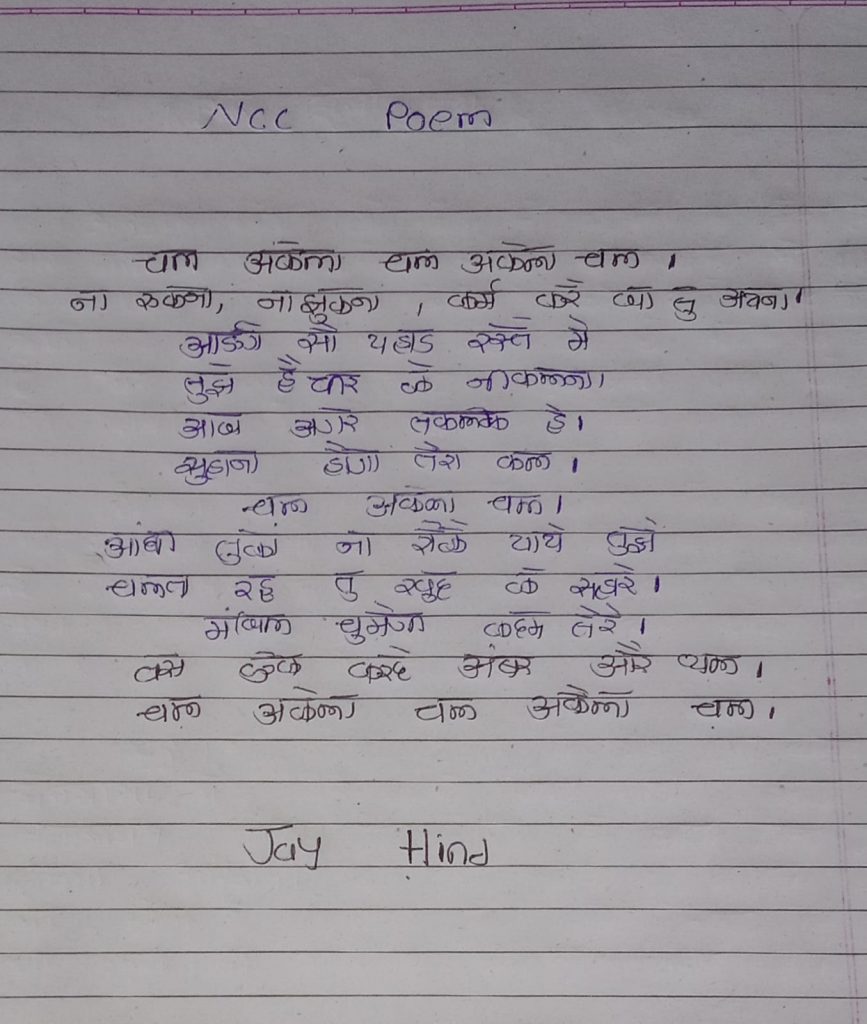 NCC Poem
चल अकेला चल अकेला चल ।
ना रुकना, ना झुकना , कर्म करे जा तु अपना।
आऐंगे सौ पहाड रस्ते मे
तुझे है पार के नीकलना।
आज अगर तकलीफ है।
सुहाना होगा तेरा कल ।
चल अकेला चल।
आंधी तुफा ना रोके पाये तुझे
चलता रह तु खुद के सहारे ।
मंजिल चुमेगी कदम तेरे ।
बस एक करदे अंबर और थल ।
चल अकेला चल अकेला चल ।
Jay Hind